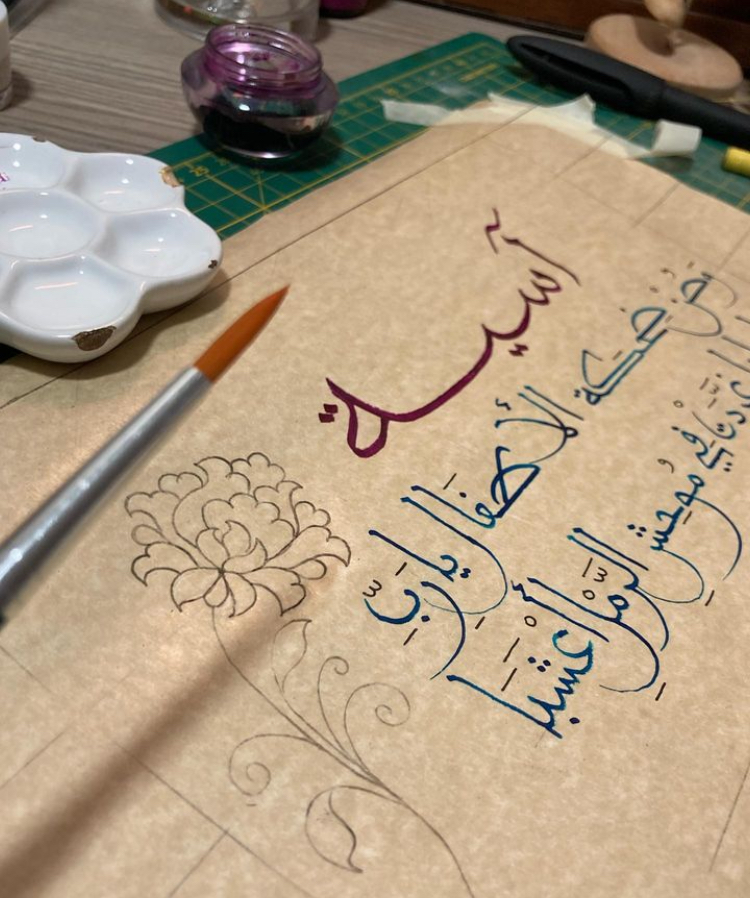 آسية
وصُن ضحكة الأطفَال يا رَبِّ
غرَّدَتْ في مُوحِشِ الرَّمْلِ أَعْشَبَا